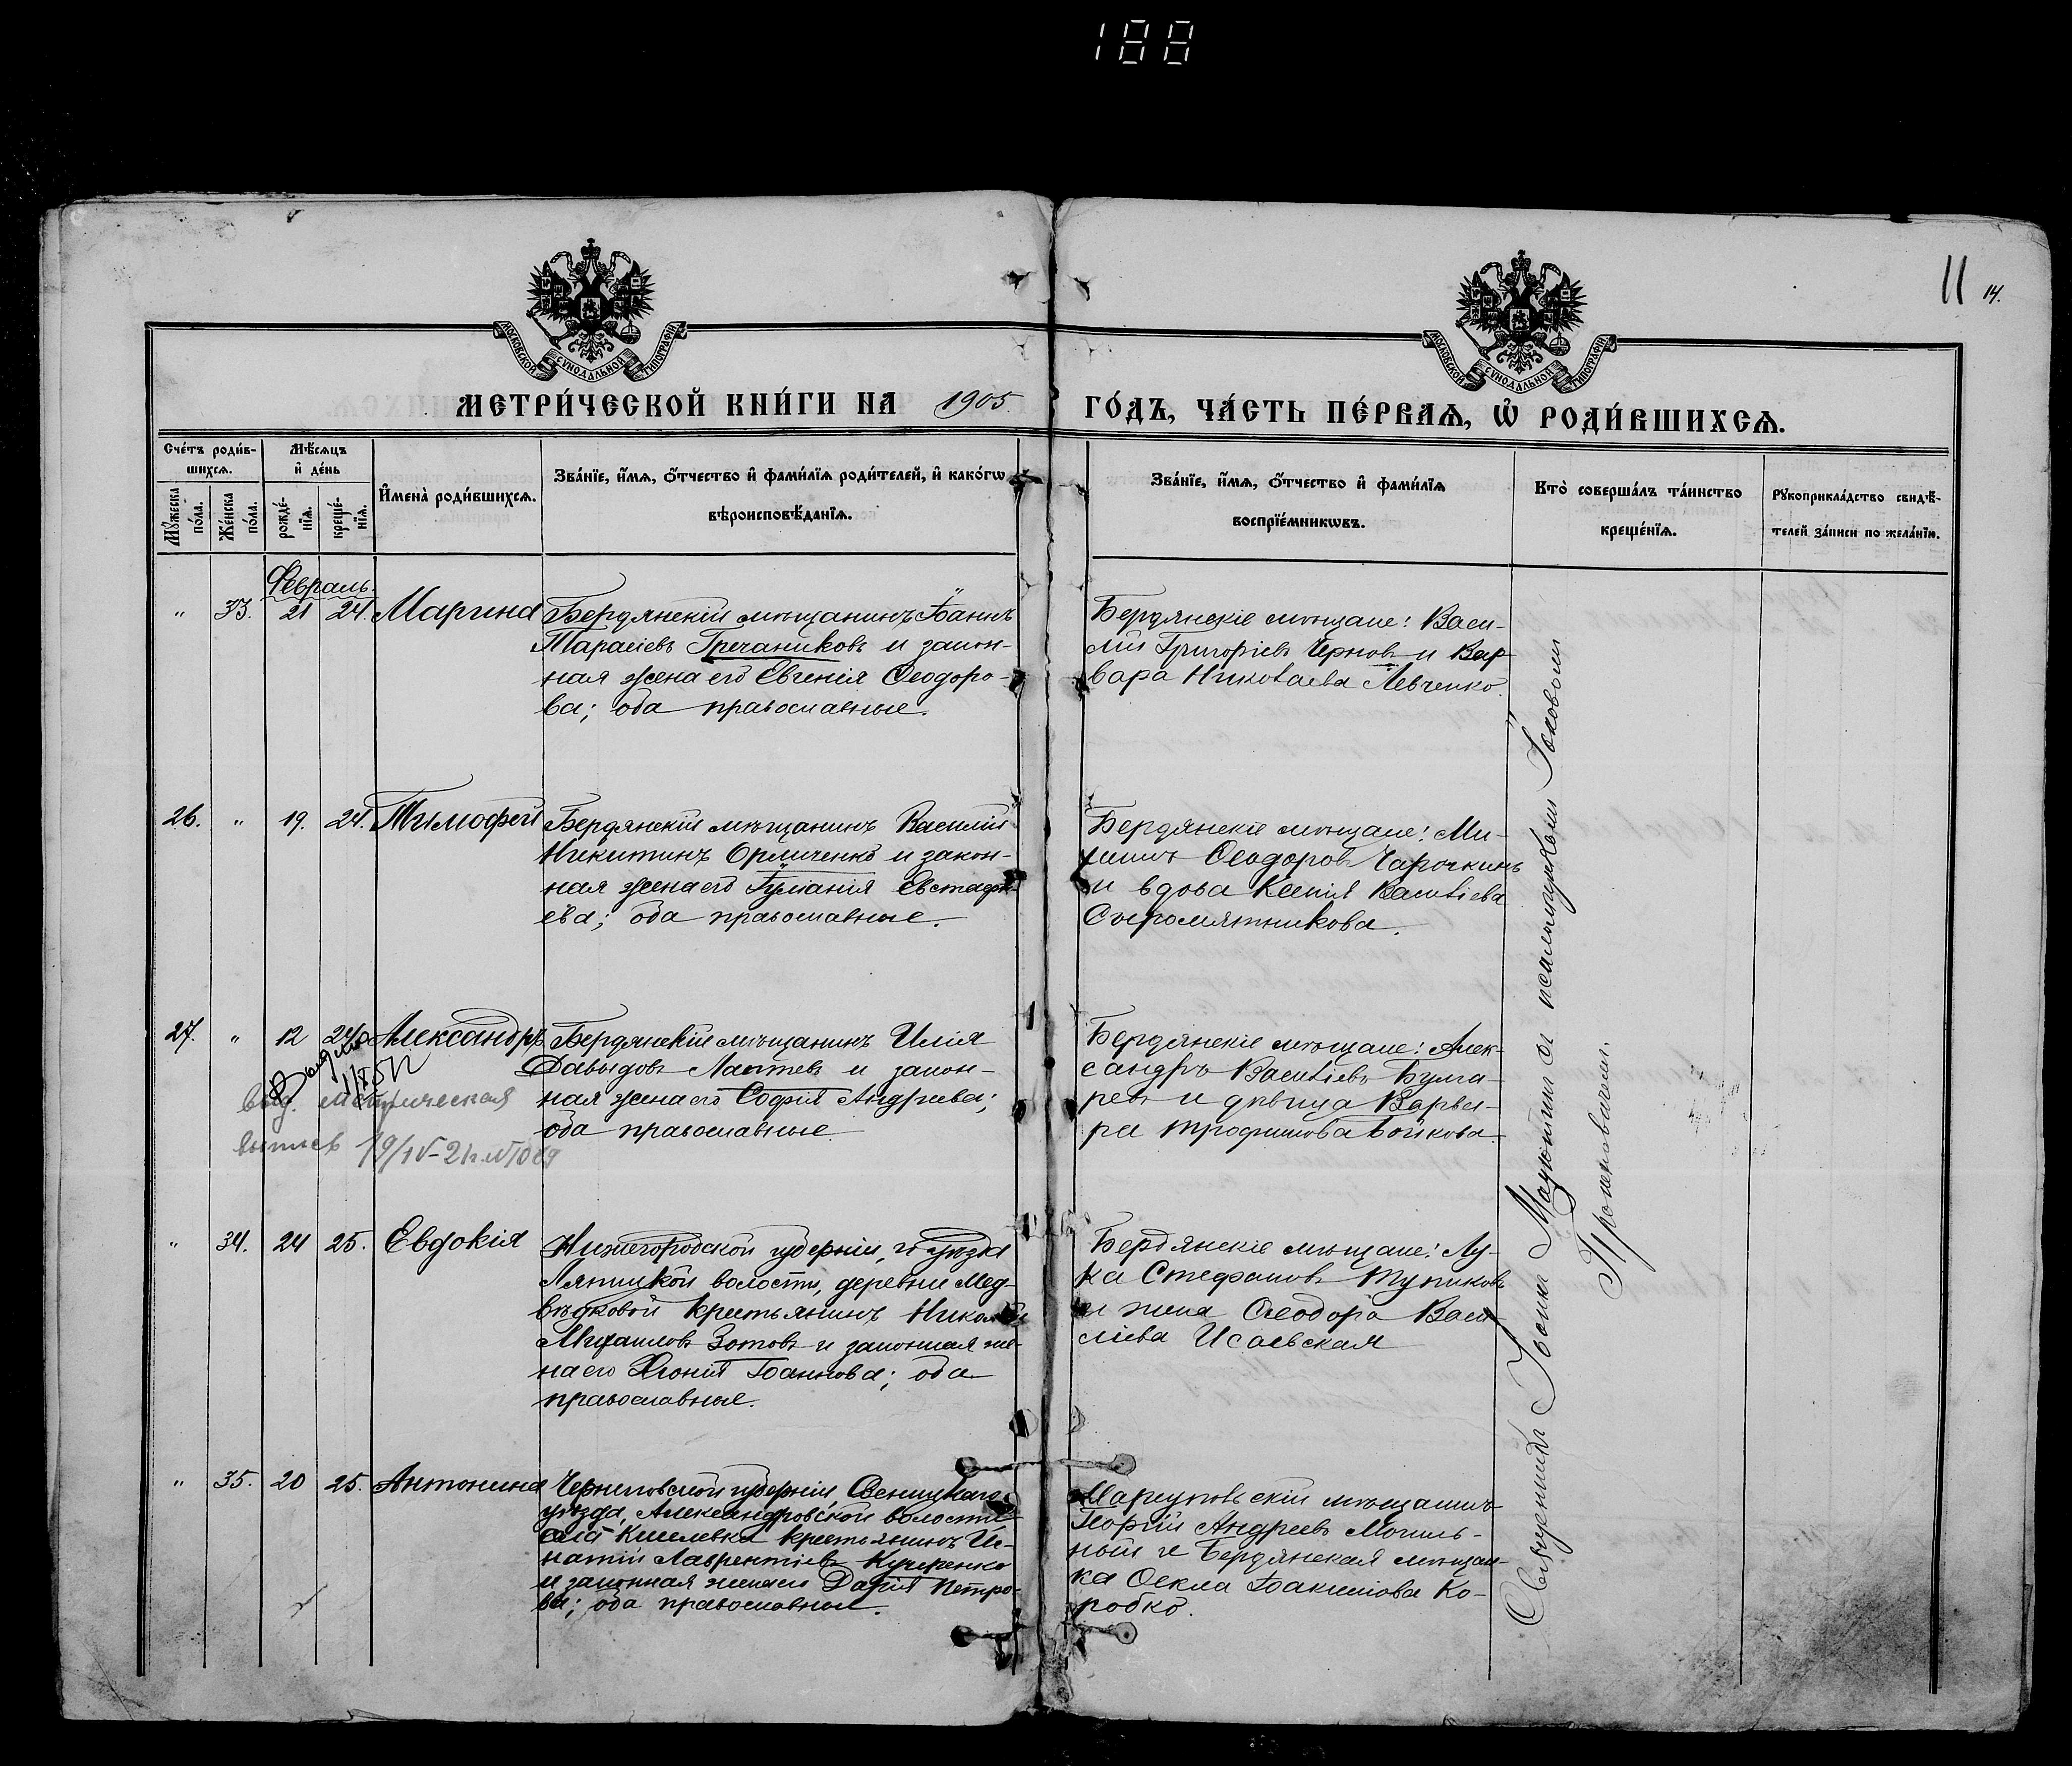 188
11 14.
МОСКОВСКОЙ СУНОДАЛЬНОЙ ТИПОГРАФІИ
МОСКОВСКОЙ СУНОДАЛЬНОЙ ТИПОГРАФІИ
МЕТРИ́ЧЕСКОЙ КНИ́ГИ НА 1905. ГО́ДЪ, ЧА́СТЬ ПЕ́РВАѦ, Ѡ҆ РОДИ́ВШИХСѦ.
Сче́тъ роди́в-
шихсѧ.
Мѣ́сѧцъ
и҆ де́нь
Мꙋ́жеска
по́ла.
Же́нска
по́ла.
рожде́-
нїѧ.
креще́-
нїѧ.
И҆мена̀ роди́вшихсѧ.
Зва́нїе, и҆́мѧ, ѻ҆́тчество и҆ фами́лїѧ роди́телей, и҆ како́гѡ
вѣроисповѣ́данїѧ.
Зва́нїе, и҆́мѧ, ѻ҆́тчество и҆ фами́лїѧ
воспрїе́мникѡвъ.
Кто̀ соверша́лъ та́инство
креще́нїѧ.
Рꙋкоприкла́дство свидѣ́-
телей за́писи по жела́нїю.
Февраль.
" 33. 21 24. Марина
Бердянскій мѣщанинъ Іоаннъ
Тарасіевъ Гречаниковъ и закон-
ная жена его Евгенія Ѳеодоро-
ва; оба православные.
Бердянскіе мѣщане: Васи-
лій Григоріевъ Черновъ и Вар-
вара Николаева Левченко.
26. " 19. 24. Тимофей
Бердянскій мѣщанинъ Василій
Никитинъ Орличенко и закон-
ная жена его Іуліанія Евстафі-
ева; оба православные.
Бердянскіе мѣщане: Ми-
хаилъ Ѳеодоровъ Чарочкинъ
и вдова Ксенія Василіева
Сыромятникова.
27. " 12 24 Александръ
Бердянскій мѣщанинъ Илія
Давыдовъ Лаптевъ и закон-
ная жена его Софія Андреева;
оба православные.
Бердянскіе мѣщане: Алек-
сандръ Василіевъ Булга-
ревъ и дѣвица Варва-
ра Трофимова Бойкова.
выд. метрическая
выпись 19/IV-21г. №
" 34. 24 25. Евдокія
Нижегородской губерніи, и уѣзда
волости, деревни Мед-
вѣдковой крестьянинъ Николай
Михаиловъ Зотовъ и законная же-
на его Хіонія Іоаннова; оба
православные.
Бердянскіе мѣщане: Лу-
ка Стефановъ Тупиковъ
и жена Ѳеодора Васи-
ліева Исаевская
" 35. 20 25. Антонина
Черниговской губерніи, Сосницкаго
уѣзда, Александровской волости
села Киселевки крестьянинъ Иг-
натій Лаврентіевъ Кучеренко
и законная жена его Дарія Петро-
ва; оба православные.
Маріупольскій мѣщанинъ
Георгій Андреевъ Могиль-
ный и Бердянская мѣщан-
ка Ѳекла Іоакимова Ко-
робко.
Священникъ Іоаннъ съ псаломщикомъ Іаковомъ
Прокоповичемъ.